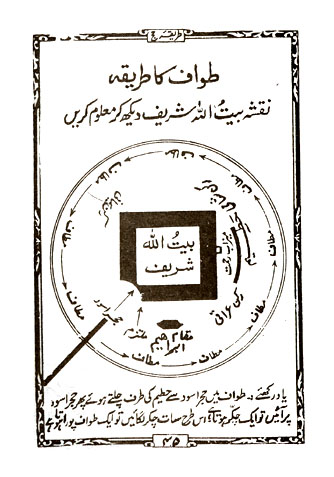 طریقہ حج
طواف کا طریقہ
نقشہ بیتُ اللہ شریف دیکھ کر معلوم کریں
مطاف
مطاف
مطاف
مطاف
مطاف
مطاف
مطاف
مطاف
رکن یمانی
میزاب رحمت
حطیم
بیتُ اللہ
شریف
رکن عراقی
حجر اسود
ملتزم
مقام
ابراہیم
یاد رکھئے : طواف میں حجر اسود سے حطیم کی طرف چلتے ہوئے پھر حجر اسود
پر آئیں تو ایک چکر ہوتا ہے اس طرح سات چکر لگائیں تو ایک طواف پورا ہوتا ہے
۴۵